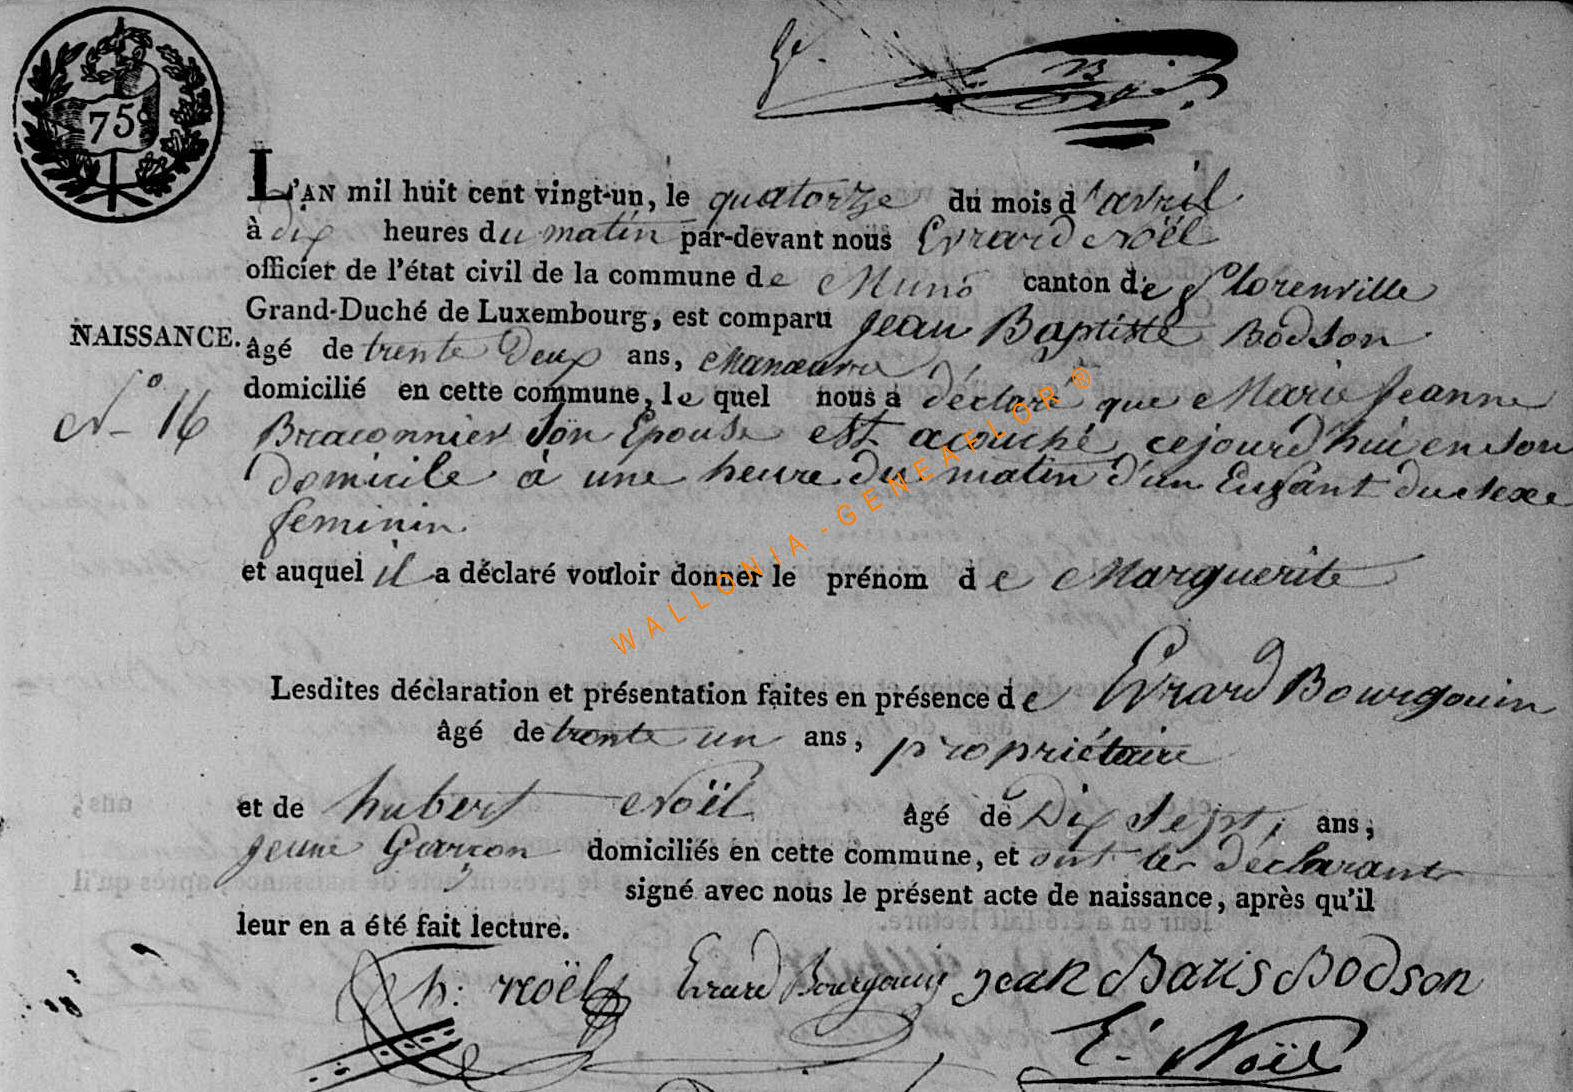 75
L'AN mil huit cent vingt-un, le quatorze du mois d'avril
à dix heures du matin par-devant nous Evrard Noël
officier de l'état civil de la commune de Muno canton de Florenville
Grand-Duché de Luxembourg, est comparu Jean Baptiste Bodson
NAISSANCE.
âgé de trente deux ans, Manœuvre
domicilié en cette commune, le quel nous a déclaré que Marie Jeanne
N° 16
Braconnier Son Epouse est acouché cejourd'hui en son
domicile à une heure du matin d'un Enfant du sexe
feminin.
et auquel il a déclaré vouloir donner le prénom de Marguerite
Lesdites déclaration et présentation faites en présence de Evrard Bourgouin
âgé de trente un ans, propriétaire
et de hubert Noël âgé de Dix Sept, ans,
jeune Garçon domiciliés en cette commune, et ont les déclarants
signé avec nous le présent acte de naissance, après qu'il
leur en a été fait lecture.
h: noël Evrard Bourgouin jean Batis Bodson
E. Noël
WALLONIA - GENEAFLOR ®